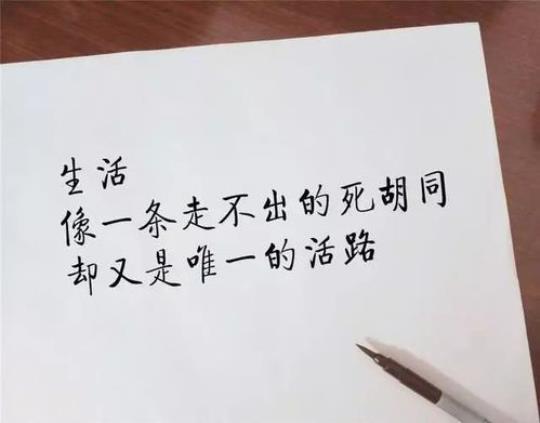 生活
像一条走不出的死胡同
却又是唯一的活路